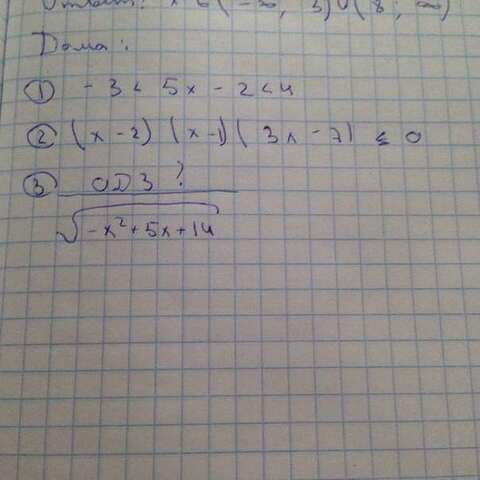 Ответ: x ∈ (-∞; 3) ∪ (8; ∞)
Дома:
① -3 < 5x - 2 < 4
② (x - 2) (x - 1) (3x - 7) ≤ 0
③ ОДЗ ?
√-x² + 5x + 14